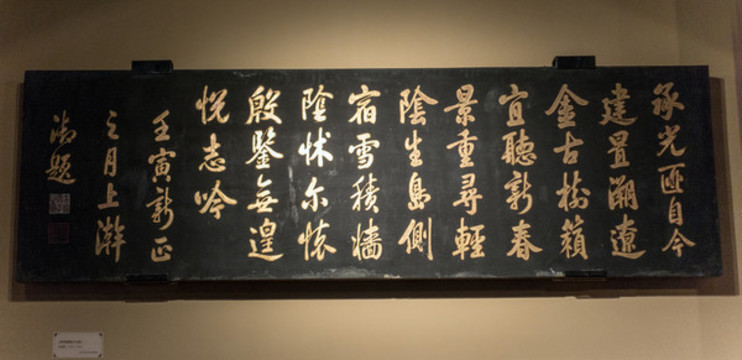 承光匪自今
建置溯遼
金古樹籟
宜聽新春
景重尋輕
陰生島側
宿雪積牆
陰怵尔懷
殷鑒無遑
悦志吟
壬寅新正
之月上澣
御題